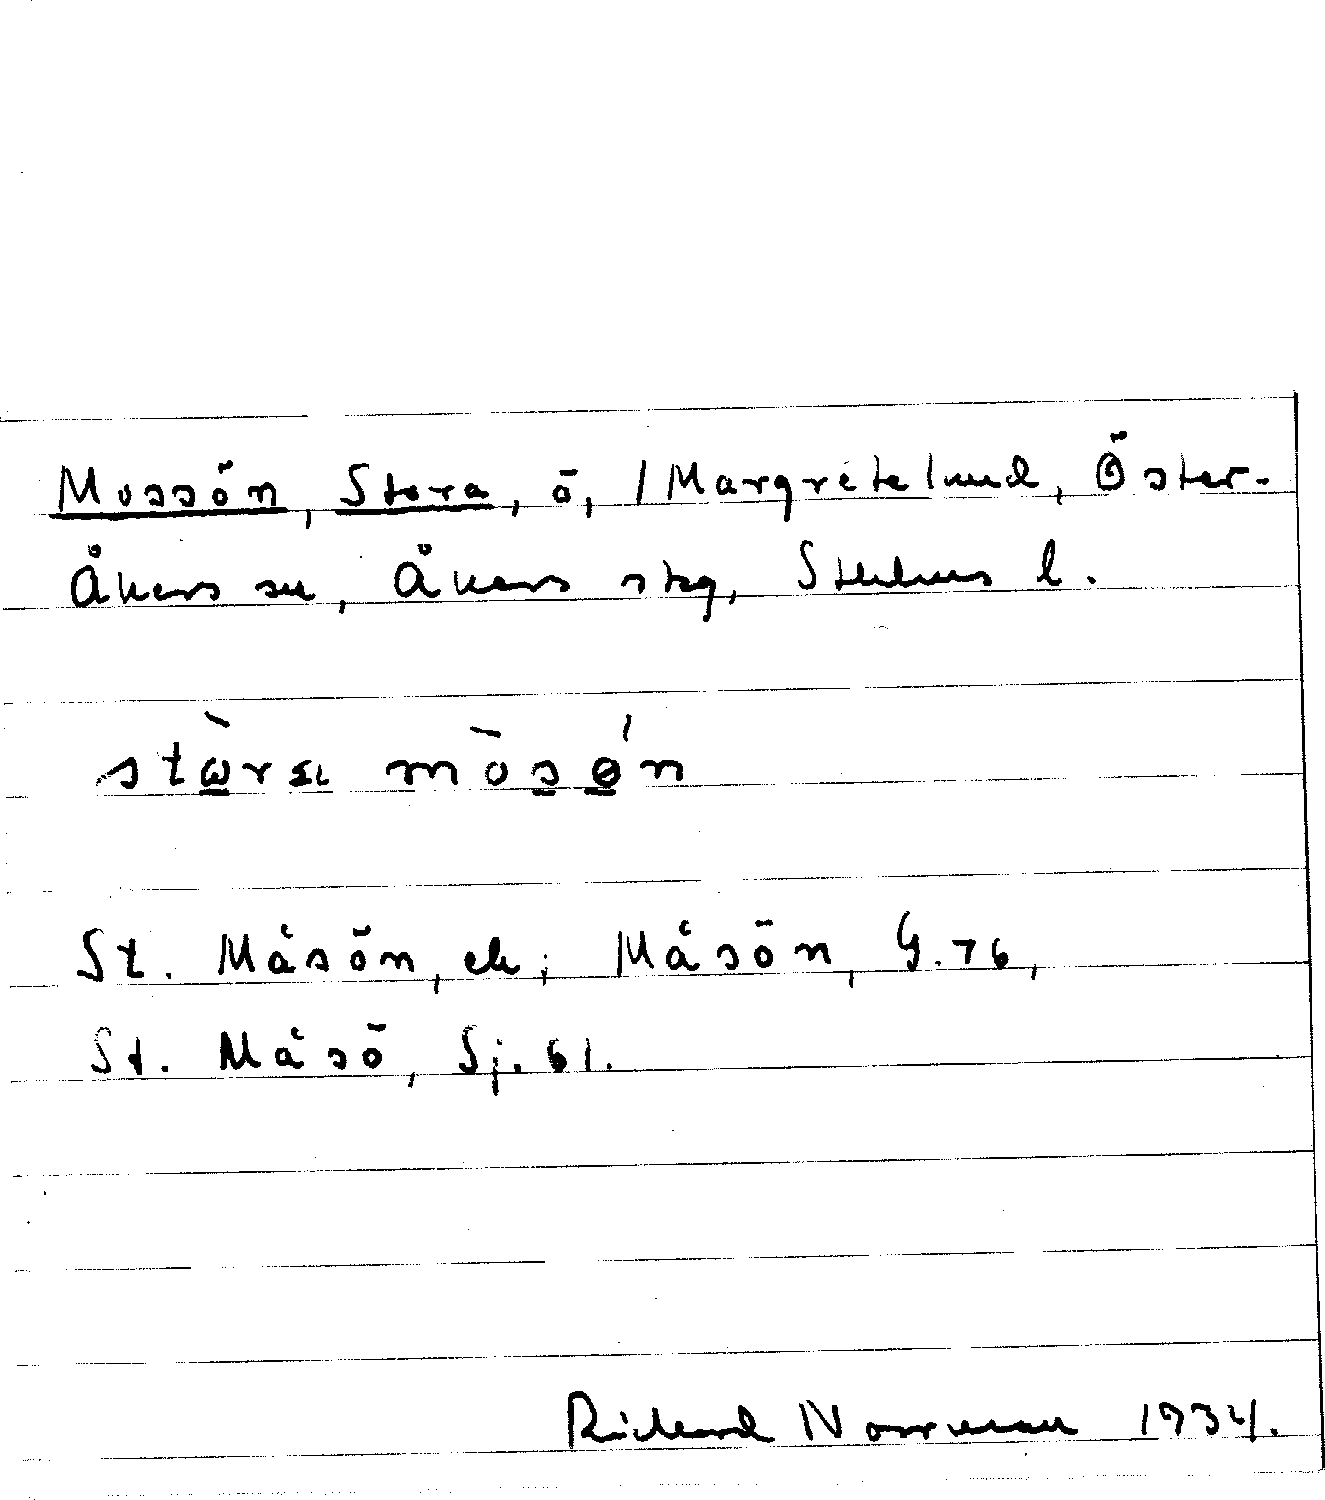 Mossön, Stora, ö, / Margretelund, Öster-
Åkers sn, Åkers skg, Sthlms l.
stωra mòsøn
St. Måsön, ek; Måsön, G. 76,
St. Måsö, Sj. 61.
Rickard Norrman 1934.